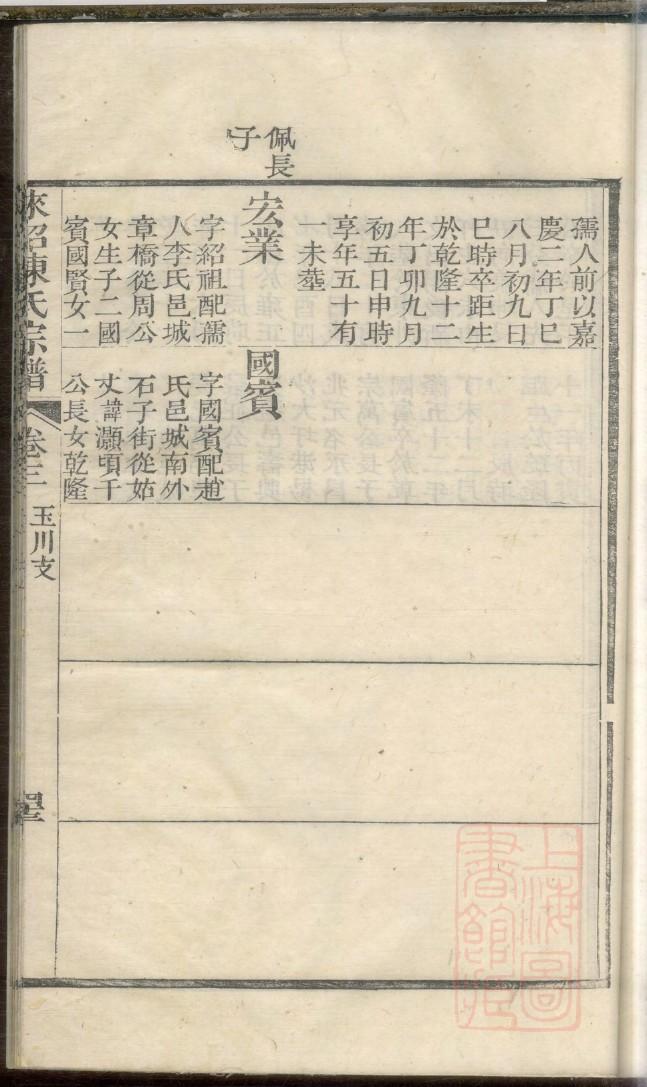 佩長
子
孺人前以嘉
慶二年丁巳
八月初九日
巳時卒距生
於乾隆十二
年丁卯九月
初五日申時
享年五十有
一未塟
宏業
字紹祖配孺
人李氏邑城
章橋從周公
女生子二國
賓國賢女一
國賓
字國賓配趙
氏邑城南外
石子街從姑
丈諱灝頃千
公長女乾隆
陳氏宗譜
卷三
玉川支
上海圖
書館藏